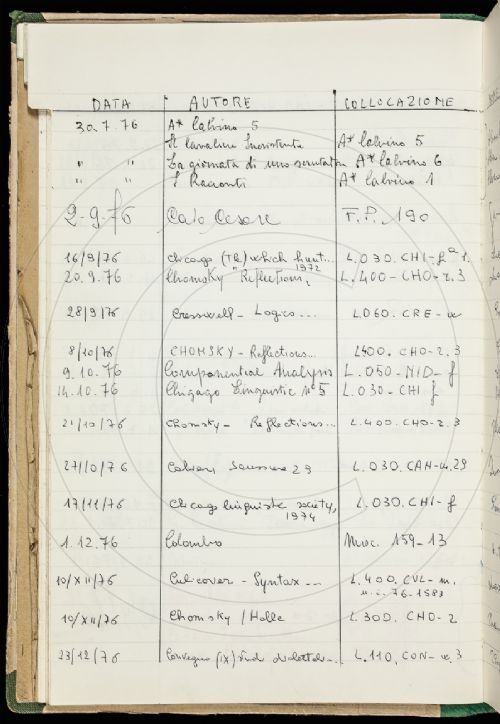 DATA AUTORE COLLOCAZIONE
30.7.76 A* Calvino 5
Il cavaliere Inesistente A* Calvino 5
" " La giornata di uno scrutatore A* Calvino 6
" " I Racconti A* Calvino 1
2-9-76 Cesare F.P. 190
16/9/76 Chicago (The) which hunt... L.030.CHI-f a 1.
20.9.76 Chomsky "Reflections, 1972 L.400-CHO-r.3
28/9/76 Cresswell - Logics... L060.CRE-
8/10/76 CHOMSKY - Reflections... L400.CHO-r.3
9.10.76 Componential Analysis L.050-NID-f
14.10.76 Chigago Linguistic n°5 L.030-CHI f
21/10/76 Chomsky - Reflections... L.400.CHO-r.3
27/10/76 Cahiers Saussure 29 L.030.CAH-u.29
17/11/76 Chicago linguistic society, L.030.CHI-f
1974
1.12.76 Colombo Misc. 159-13
10/XII/76 Culicover - Syntax... L.400.CUL-m.
76-1583
10/XII/76 Chomsky/Halle L.300.CHO-2
23/12/76 Convegno (IX) L.110.CON-